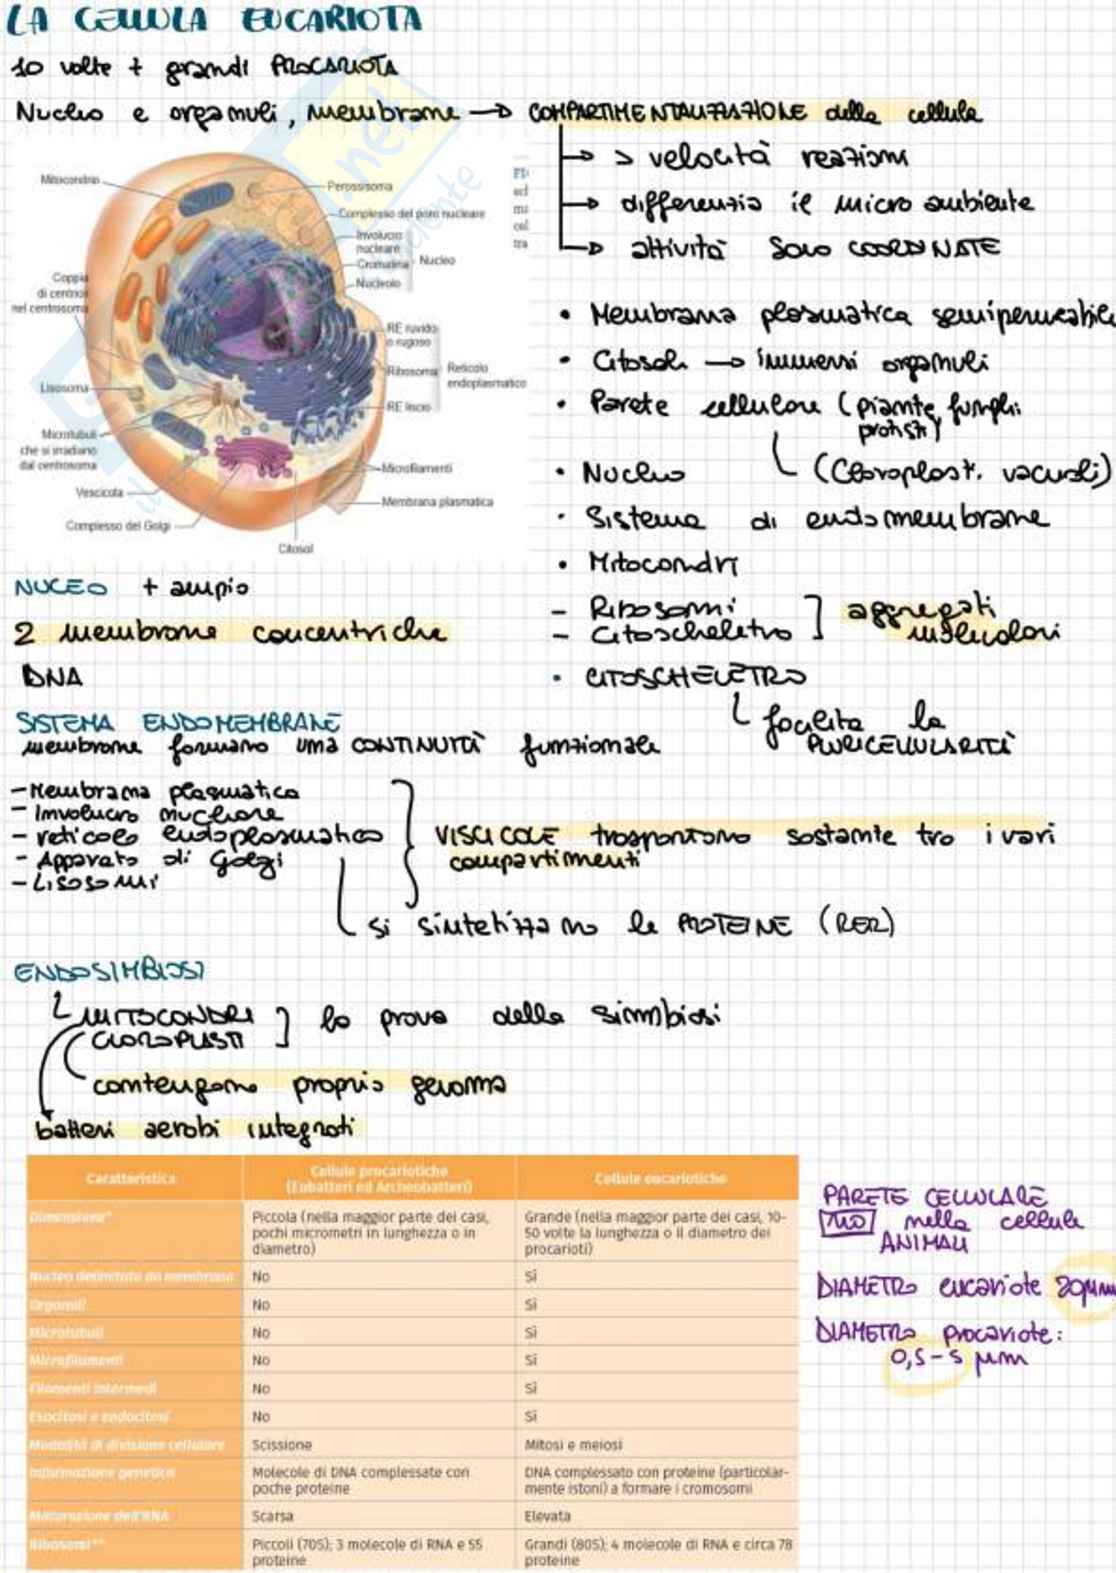 LA CELLULA EUCARIOTA
10 volte + grandi PROCARIOTA
Nucleo e organuli, membrane → COMPARTIMENTALIZZAZIONE della cellula
→ > velocità reazioni
→ differenzia il micro ambiente
→ attività SONO COORDINATE
Mitocondrio
Perossisoma
Complesso del poro nucleare
Involucro
nucleare
Cromatina
Nucleolo
Nucleo
Coppia
di centrioli
nel centrosoma
RE ruvido
o rugoso
Ribosoma
Reticolo
endoplasmatico
RE liscio
Lisosoma
Microtubuli
che si irradiano
dal centrosoma
Microfilamenti
Vescicola
Membrana plasmatica
Complesso del Golgi
Citosol
• Membrana plasmatica semipermeabile
• Citosol → immersi organuli
• Parete cellulare (piante, funghi
protisti)
(Cloroplasti, vacuoli)
• Nucleo
• Sistema di endomembrane
• Mitocondri
- Ribosomi
- Citoscheletro
] aggregati
molecolari
• CITOSCHELETRO
facilita la
PLURICELLULARITÀ
NUCEO + ampio
2 membrane concentriche
DNA
SISTEMA ENDOMEMBRANE
membrane formano una CONTINUITÀ funzionale
- Membrana plasmatica
- Involucro nucleare
- reticolo endoplasmatico
- Apparato di Golgi
- Lisosomi
VISCICOLE trasportano sostanze tra i vari
compartimenti
si sintetizzano le PROTEINE (RER)
ENDOSIMBIOSI
MITOCONDRI
CLOROPLASTI
] la prova della simmbiosi
contengono proprio genoma
batteri aerobi integrati
Caratteristica
Cellule procariotiche
(Eubatteri ed Archeobatteri)
Cellule eucariotiche
Dimensione*
Piccola (nella maggior parte dei casi,
pochi micrometri in lunghezza o in
diametro)
Grande (nella maggior parte dei casi, 10-
50 volte la lunghezza o il diametro dei
procarioti)
Nucleo delimitato da membrana No Sì
Organuli No Sì
Microtubuli No Sì
Microfilamenti No Sì
Filamenti intermedi No Sì
Esocitosi e endocitosi No Sì
Modalità di divisione cellulare Scissione Mitosi e meiosi
Informazione genetica
Molecole di DNA complessate con
poche proteine
DNA complessato con proteine (particolar-
mente istoni) a formare i cromosomi
Maturazione dell'RNA Scarsa Elevata
Ribosomi**
Piccoli (70S); 3 molecole di RNA e 55
proteine
Grandi (80S); 4 molecole di RNA e circa 78
proteine
PARETE CELLULARE
NO nella cellula
ANIMALI
DIAMETRO eucariote 20μm
DIAMETRO procariote:
0,5-5 μm